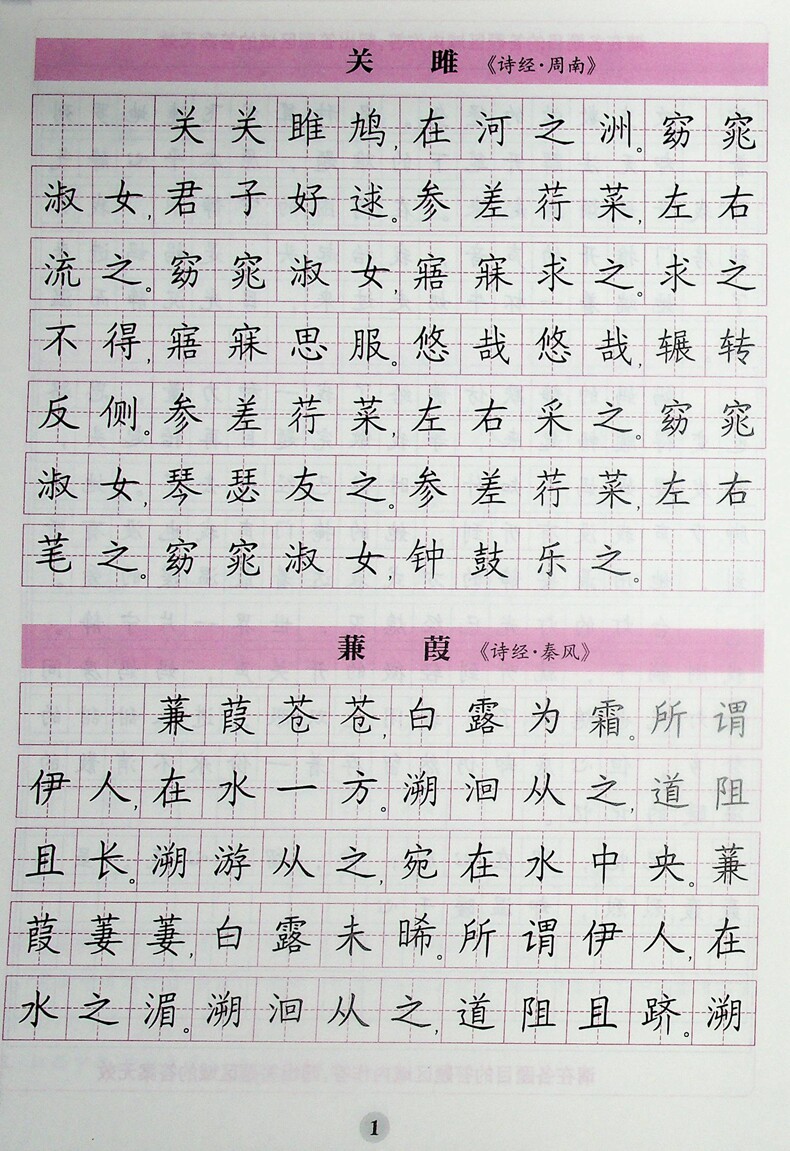 关 雎 《诗经·周南》
关关雎鸠,在河之洲。窈窕
淑女,君子好逑。参差荇菜,左右
流之。窈窕淑女,寤寐求之。求之
不得,寤寐思服。悠哉悠哉,辗转
反侧。参差荇菜,左右采之。窈窕
淑女,琴瑟友之。参差荇菜,左右
芼之。窈窕淑女,钟鼓乐之。
蒹 葭 《诗经·秦风》
蒹葭苍苍,白露为霜。所谓
伊人,在水一方。溯洄从之,道阻
且长。溯游从之,宛在水中央。蒹
葭萋萋,白露未晞。所谓伊人,在
水之湄。溯洄从之,道阻且跻。溯
1